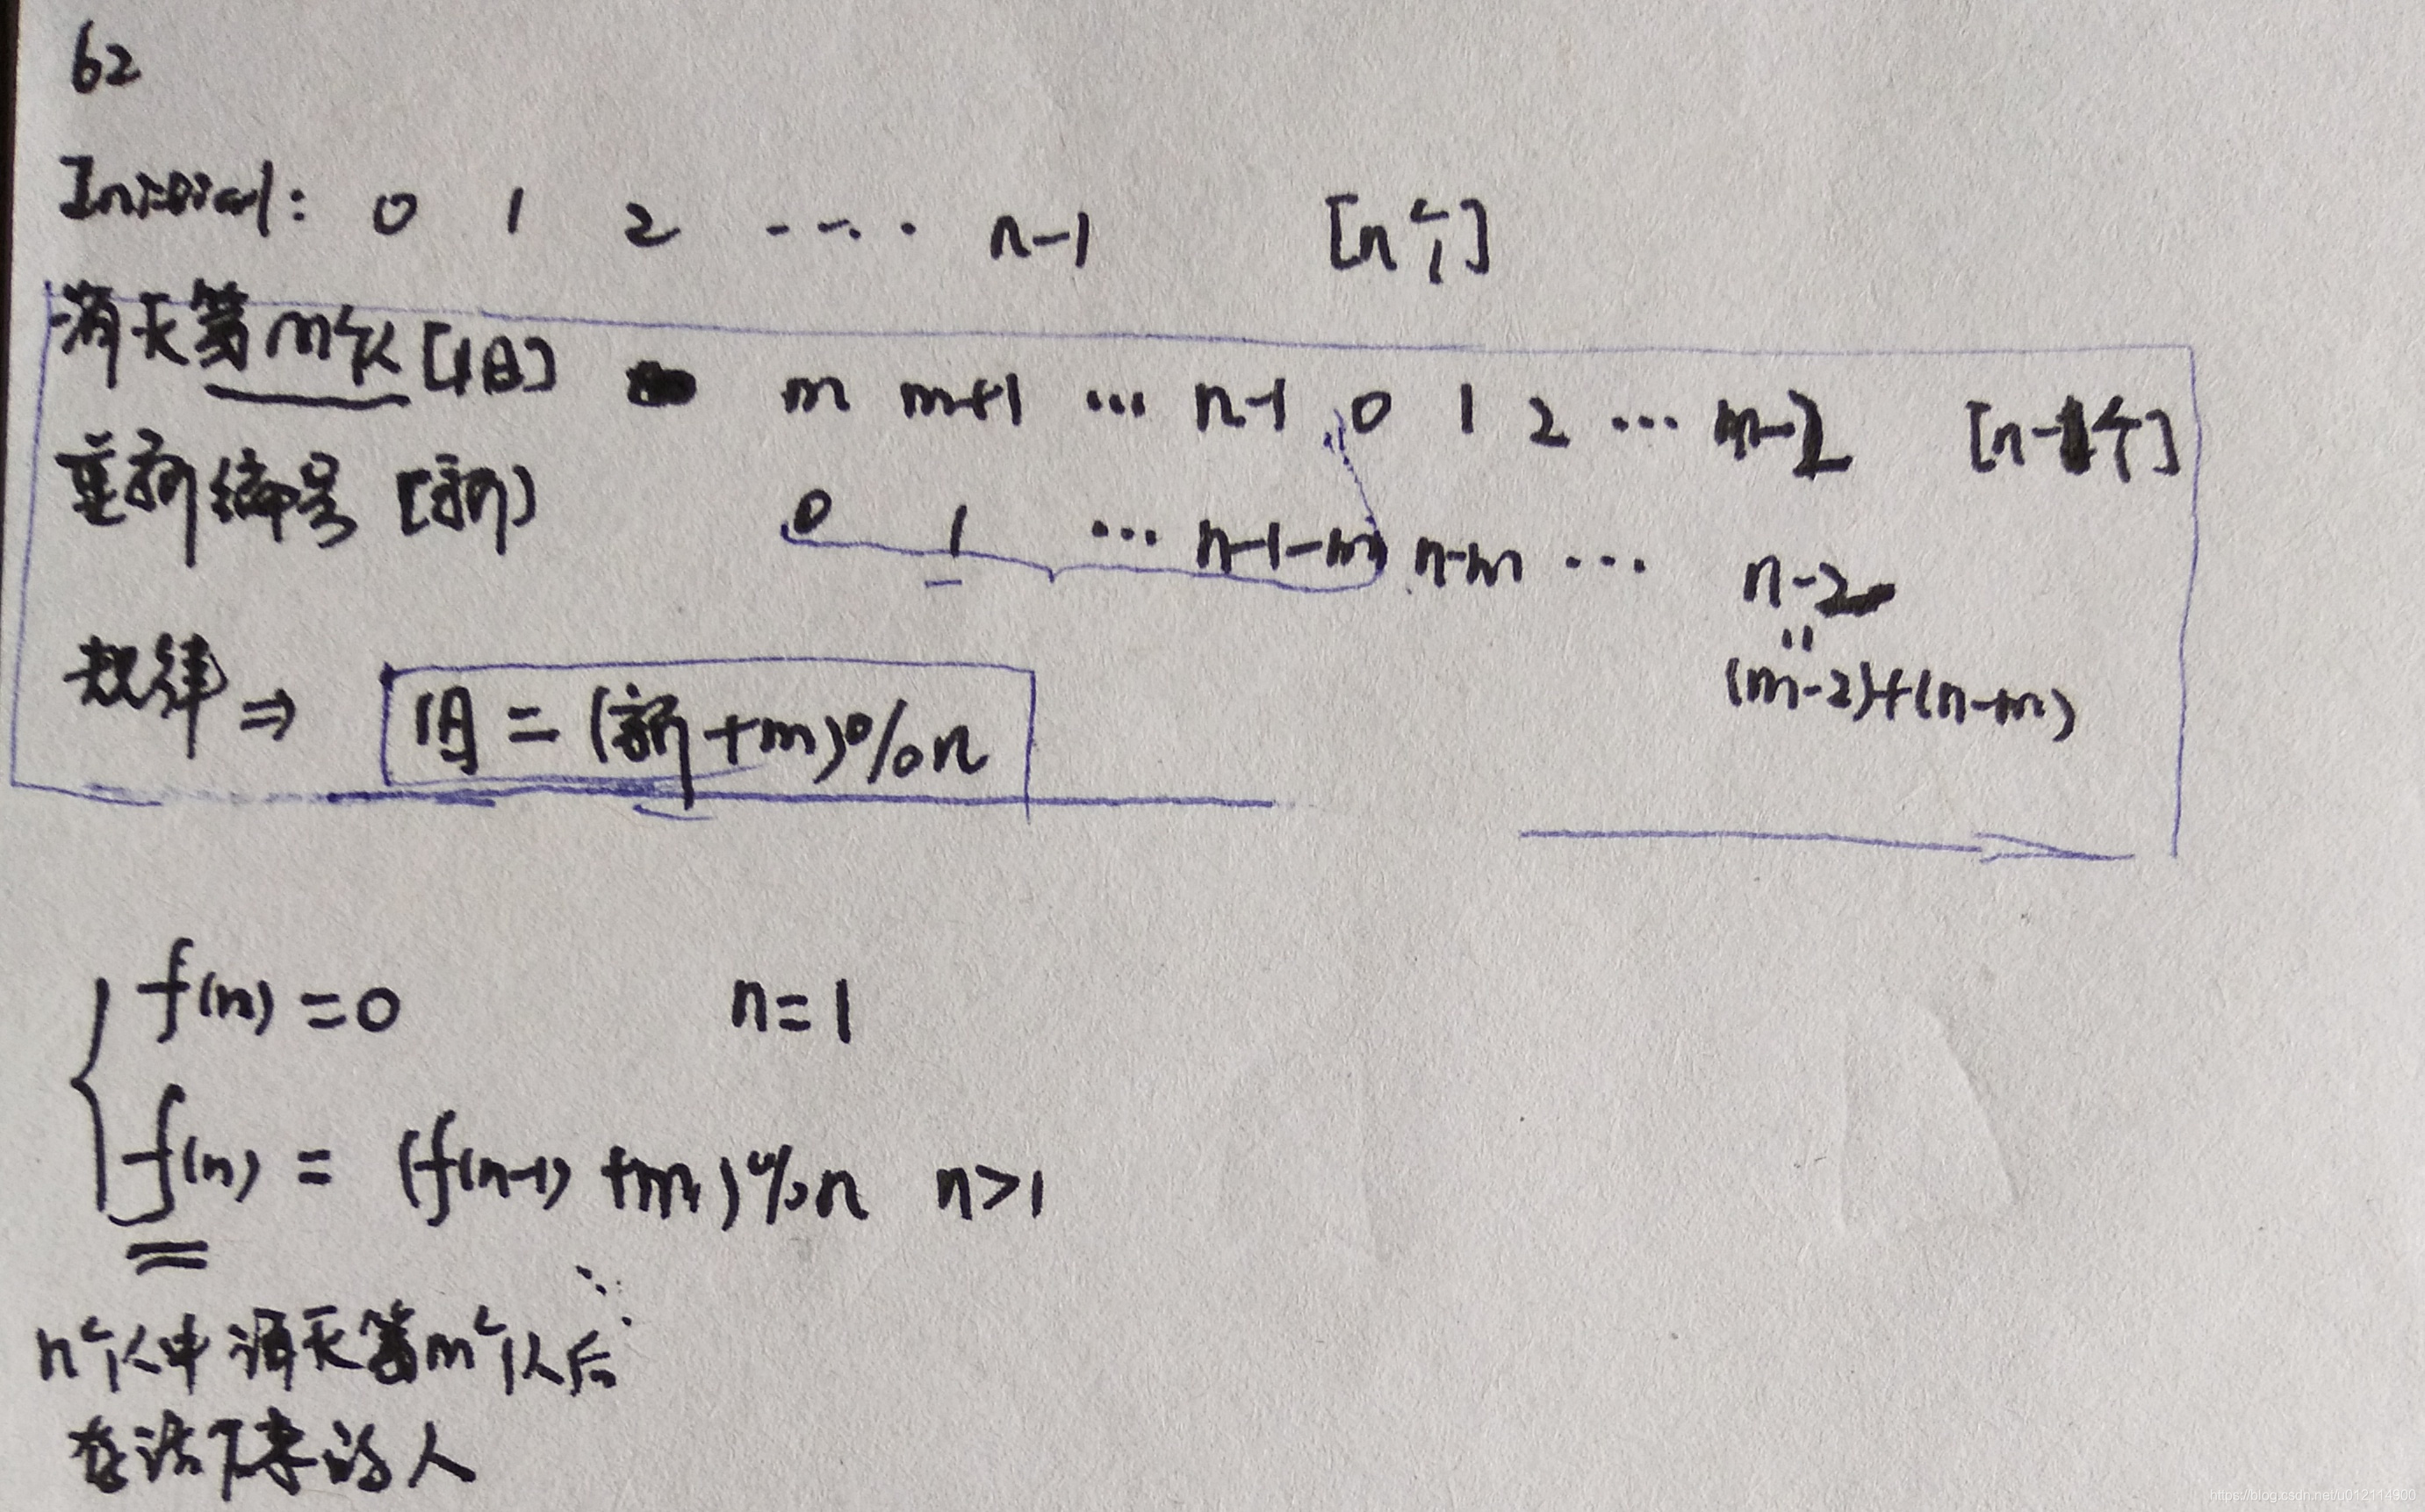 62
Initial: 0 1 2 ···· n-1 [n个]
消灭第m个人[旧] m m+1 ··· n-1 0 1 2 ··· m-2 [n-1个]
重新编号 [新] 0 1 ··· n-1-m n-m ··· n-2
=
(m-2)+(n-m)
规律⇒ 旧=(新+m)%n
f(n)=0 n=1
f(n) = (f(n-1)+m)%n n>1
n个人中消灭第m个人后
存活下来的人
https://blog.csdn.net/u012114900